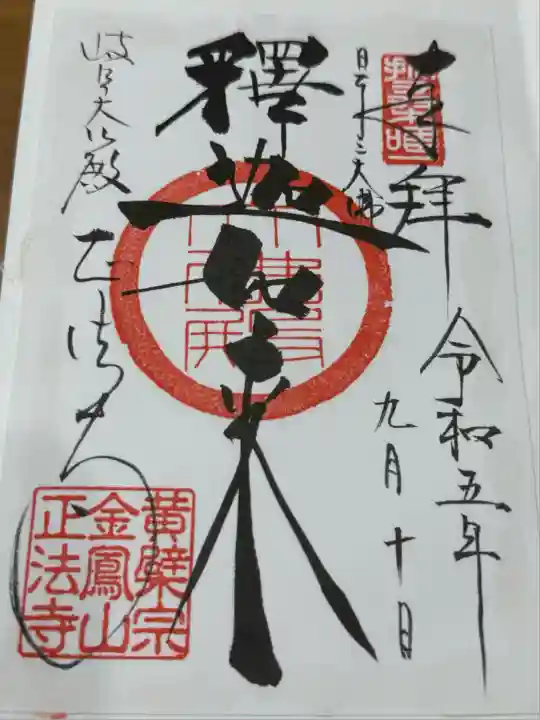 奉拝
令和五年
九月十日
日本三大佛
釋迦如来
岐阜大仏殿
正法寺
黄檗宗
金鳳山
正法寺